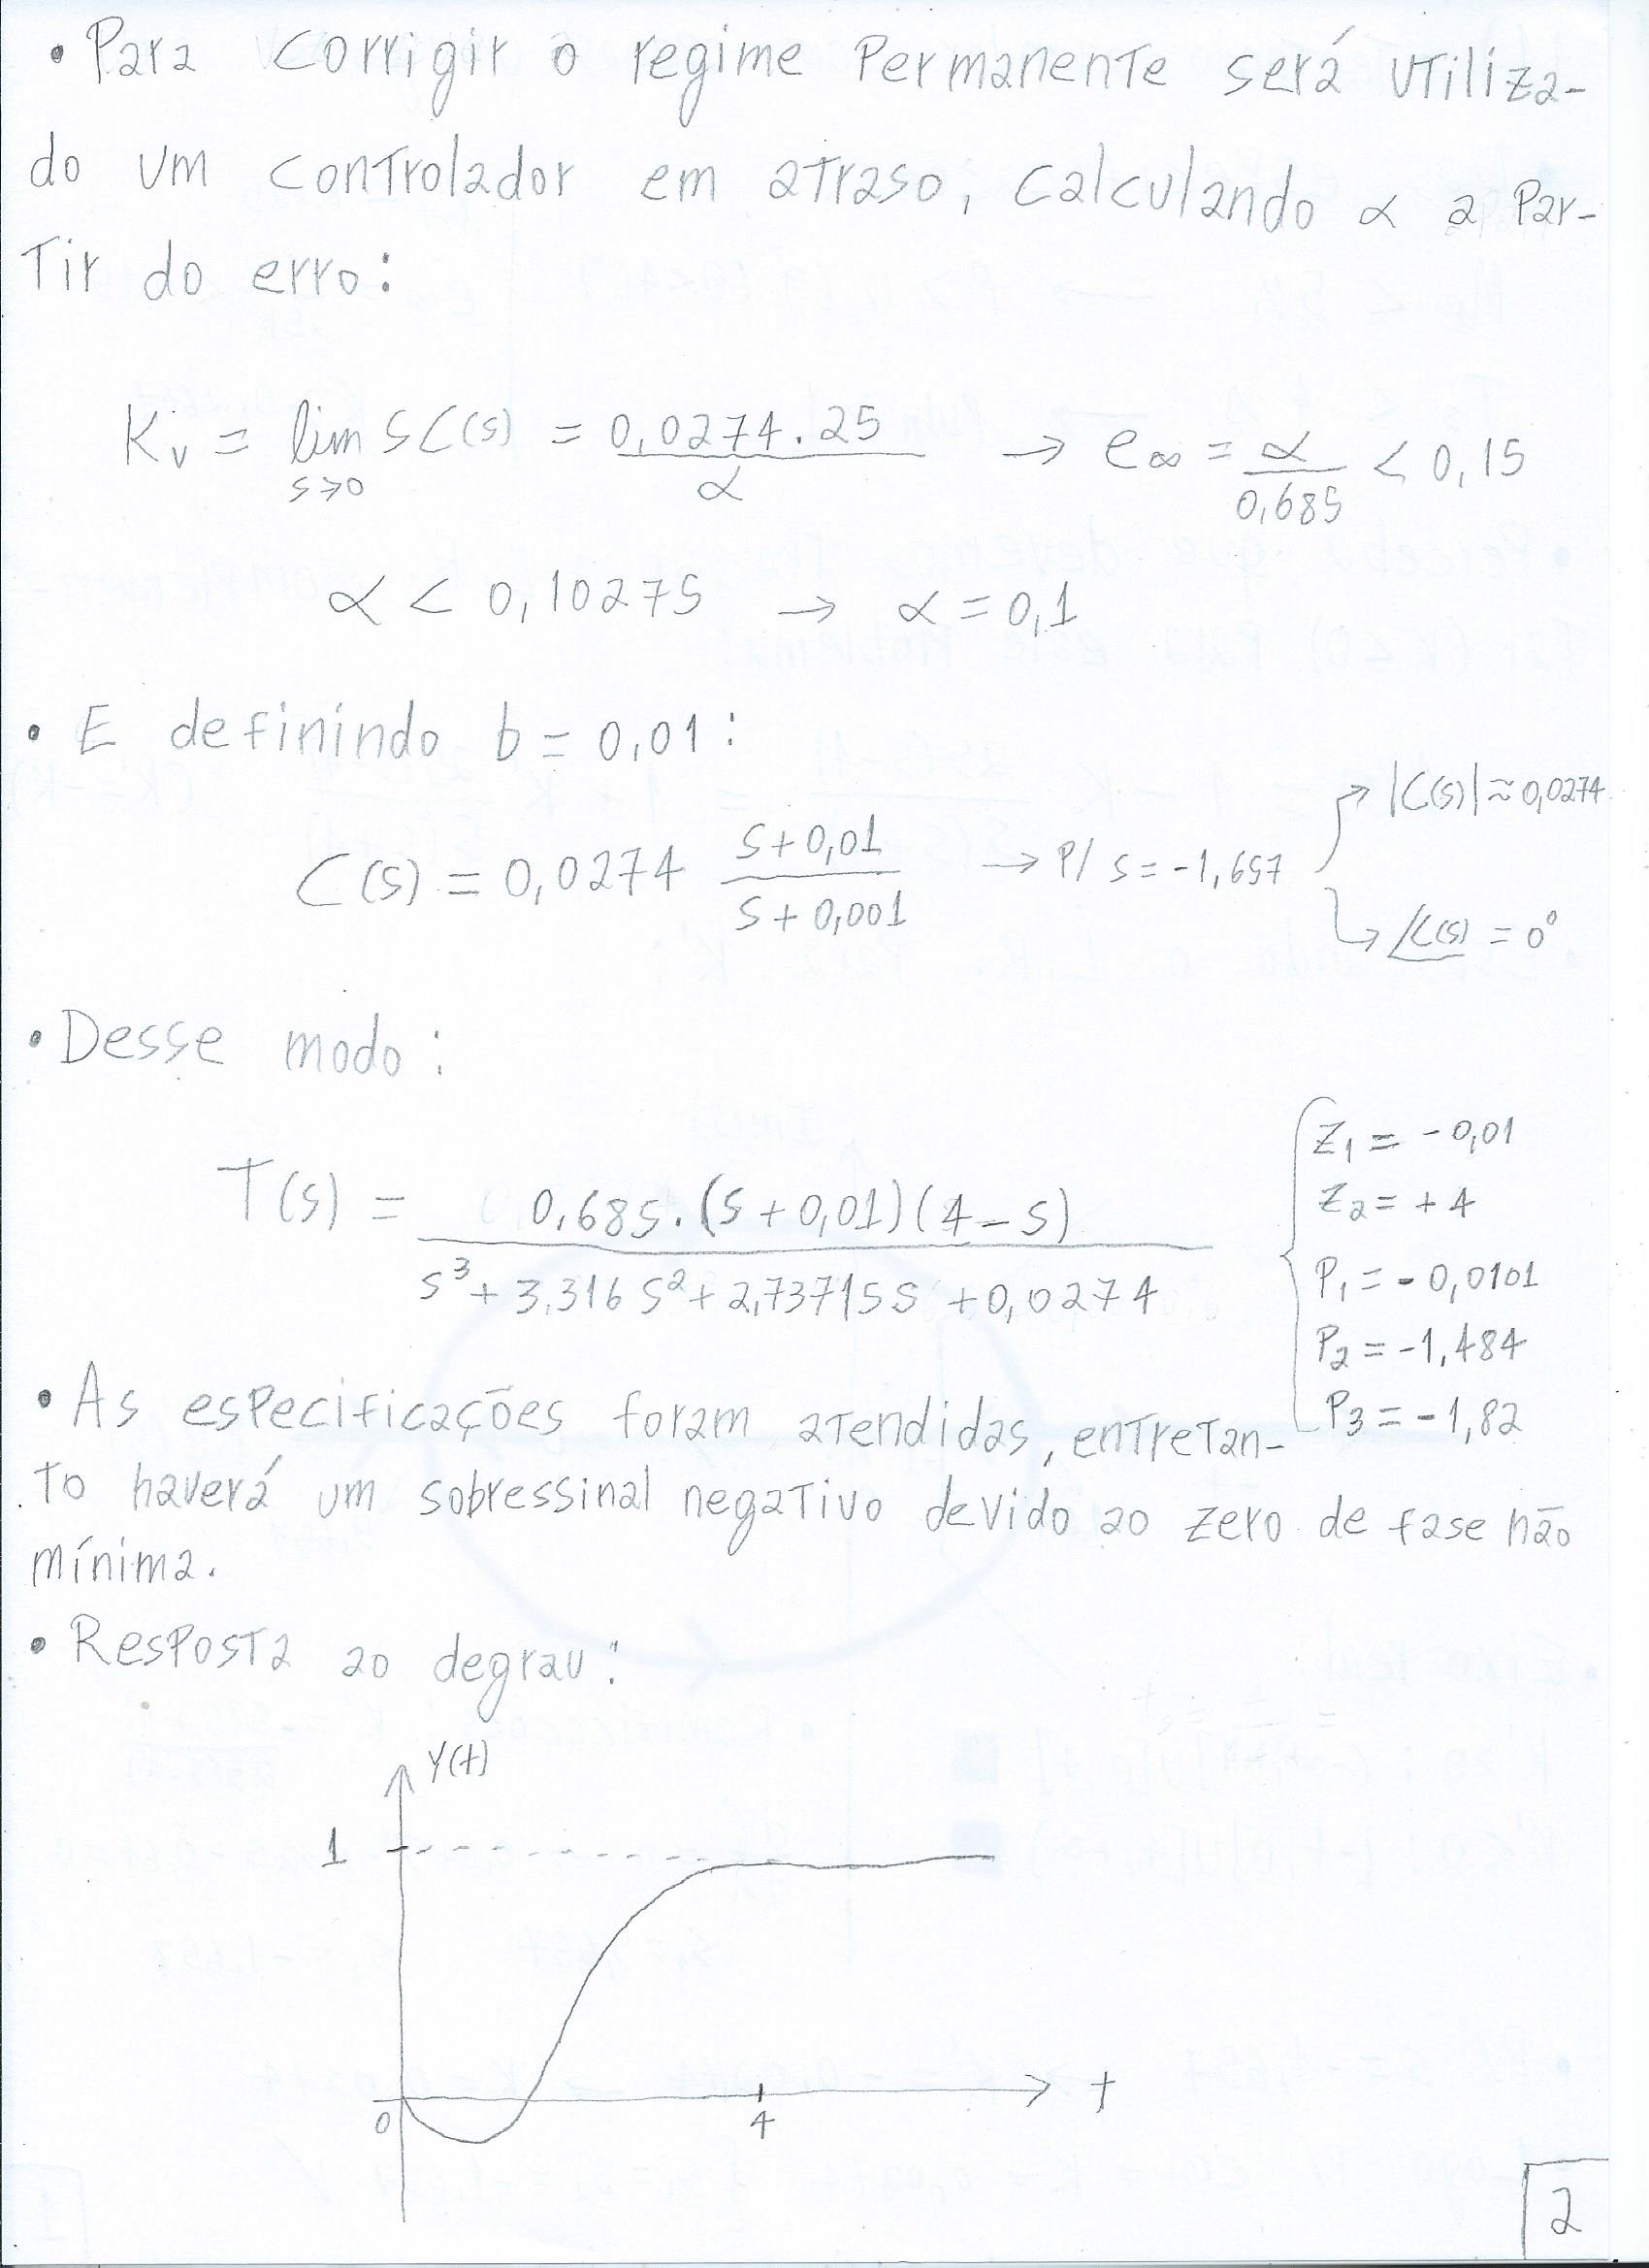 • Para corrigir o regime permanente será utiliza-
do um controlador em atraso, calculando α a par-
tir do erro:
Kv = lim s→0 sC(s) = 0,0274.25/α → e∞ = α/0,685 < 0,15
α < 0,10275 → α = 0,1
• E definindo b = 0,01:
C(s) = 0,0274 (s+0,01)/(s+0,001) → P/ s = -1,657
|C(s)| ≈ 0,0274
/C(s) = 0°
• Desse modo:
T(s) = 0,685.(s+0,01)(4-s)/(s³ + 3,316s² + 2,73715s + 0,0274)
Z1 = -0,01
Z2 = +4
P1 = -0,0101
P2 = -1,484
P3 = -1,82
• As especificações foram atendidas, entretan-
to haverá um sobressinal negativo devido ao zero de fase não
mínima.
• Resposta ao degrau:
Y(t)
1
0
4
t
2